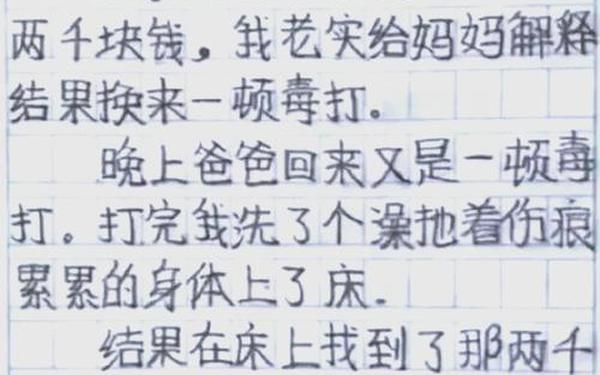 两千块钱，我老实给妈妈解释
结果换来一顿毒打。
晚上爸爸回来又是一顿毒
打。打完我洗了个澡扡着伤痕
累累的身体上了床.
结果在床上找到了那两千